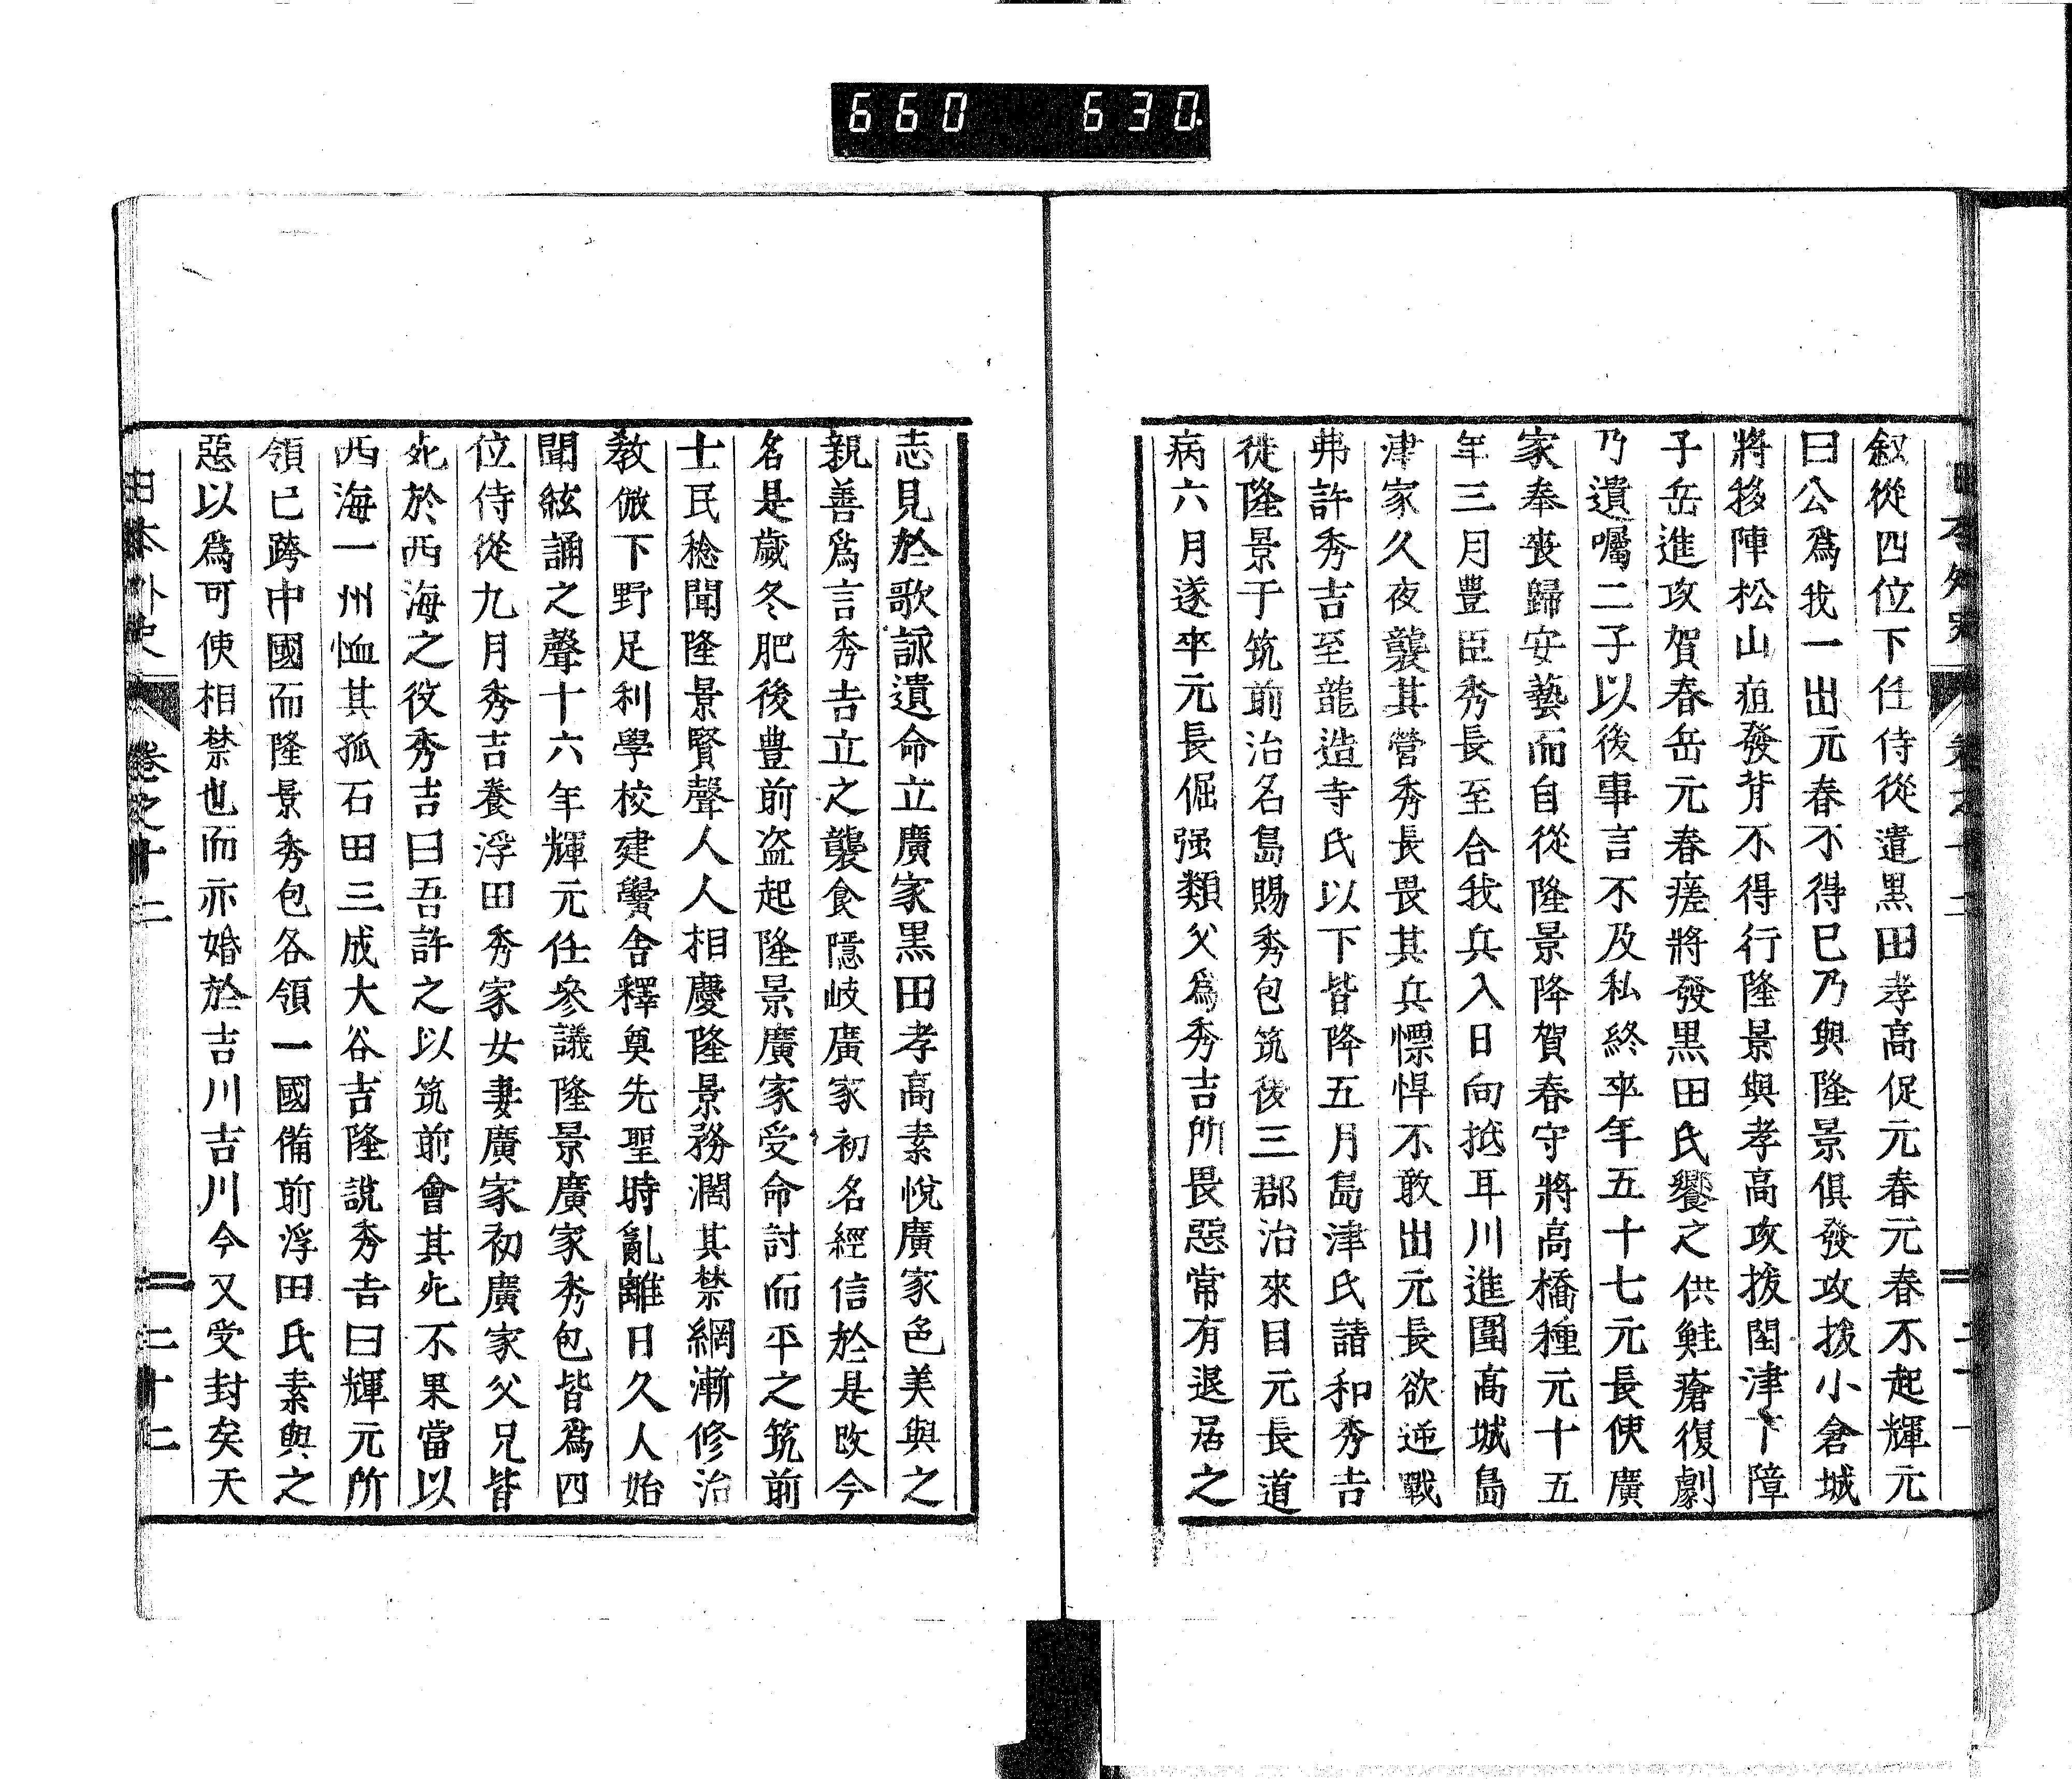 660 630
叙從四位下任侍從遣黑田孝高促元春元春不起輝元
曰公爲我一出元春不得已乃與隆景俱發攻拔小倉城
將移陣松山疽發背不得行隆景與孝高攻拔閏津下障
子岳進攻賀春岳元春瘥將發黑田氏饗之供鮭瘡復劇
乃遺囑二子以後事言不及私終卒年五十七元長使廣
家奉喪歸安藝而自從隆景降賀春守將高橋種元十五
年三月豊臣秀長至合我兵入日向抵耳川進圍高城島
津家久夜襲其營秀長畏其兵慓悍不敢出元長欲逆戰
弗許秀吉至龍造寺氏以下皆降五月島津氏請和秀吉
徙隆景于筑前治名島賜秀包筑後三郡治來目元長道
病六月遂卒元長倔强類父爲秀吉所畏惡常有退居之
志見於歌詠遺命立廣家黑田孝高素悅廣家色美與之
親善爲言秀吉立之襲食隱岐廣家初名經信於是改今
名是歲冬肥後豊前盗起隆景廣家受命討而平之筑前
士民稔聞隆景賢聲人人相慶隆景務濶其禁網漸修治
教倣下野足利學校建黌舍釋奠先聖時亂離日久人始
聞絃誦之聲十六年輝元任參議隆景廣家秀包皆爲四
位侍從九月秀吉養浮田秀家女妻廣家初廣家父兄皆
死於西海之役秀吉曰吾許之以筑前會其死不果當以
西海一州恤其孤石田三成大谷吉隆說秀吉曰輝元所
領已跨中國而隆景秀包各領一國備前浮田氏素與之
惡以爲可使相禁也而亦婚於吉川吉川今又受封矣天
日本外史 卷之十二 二十二